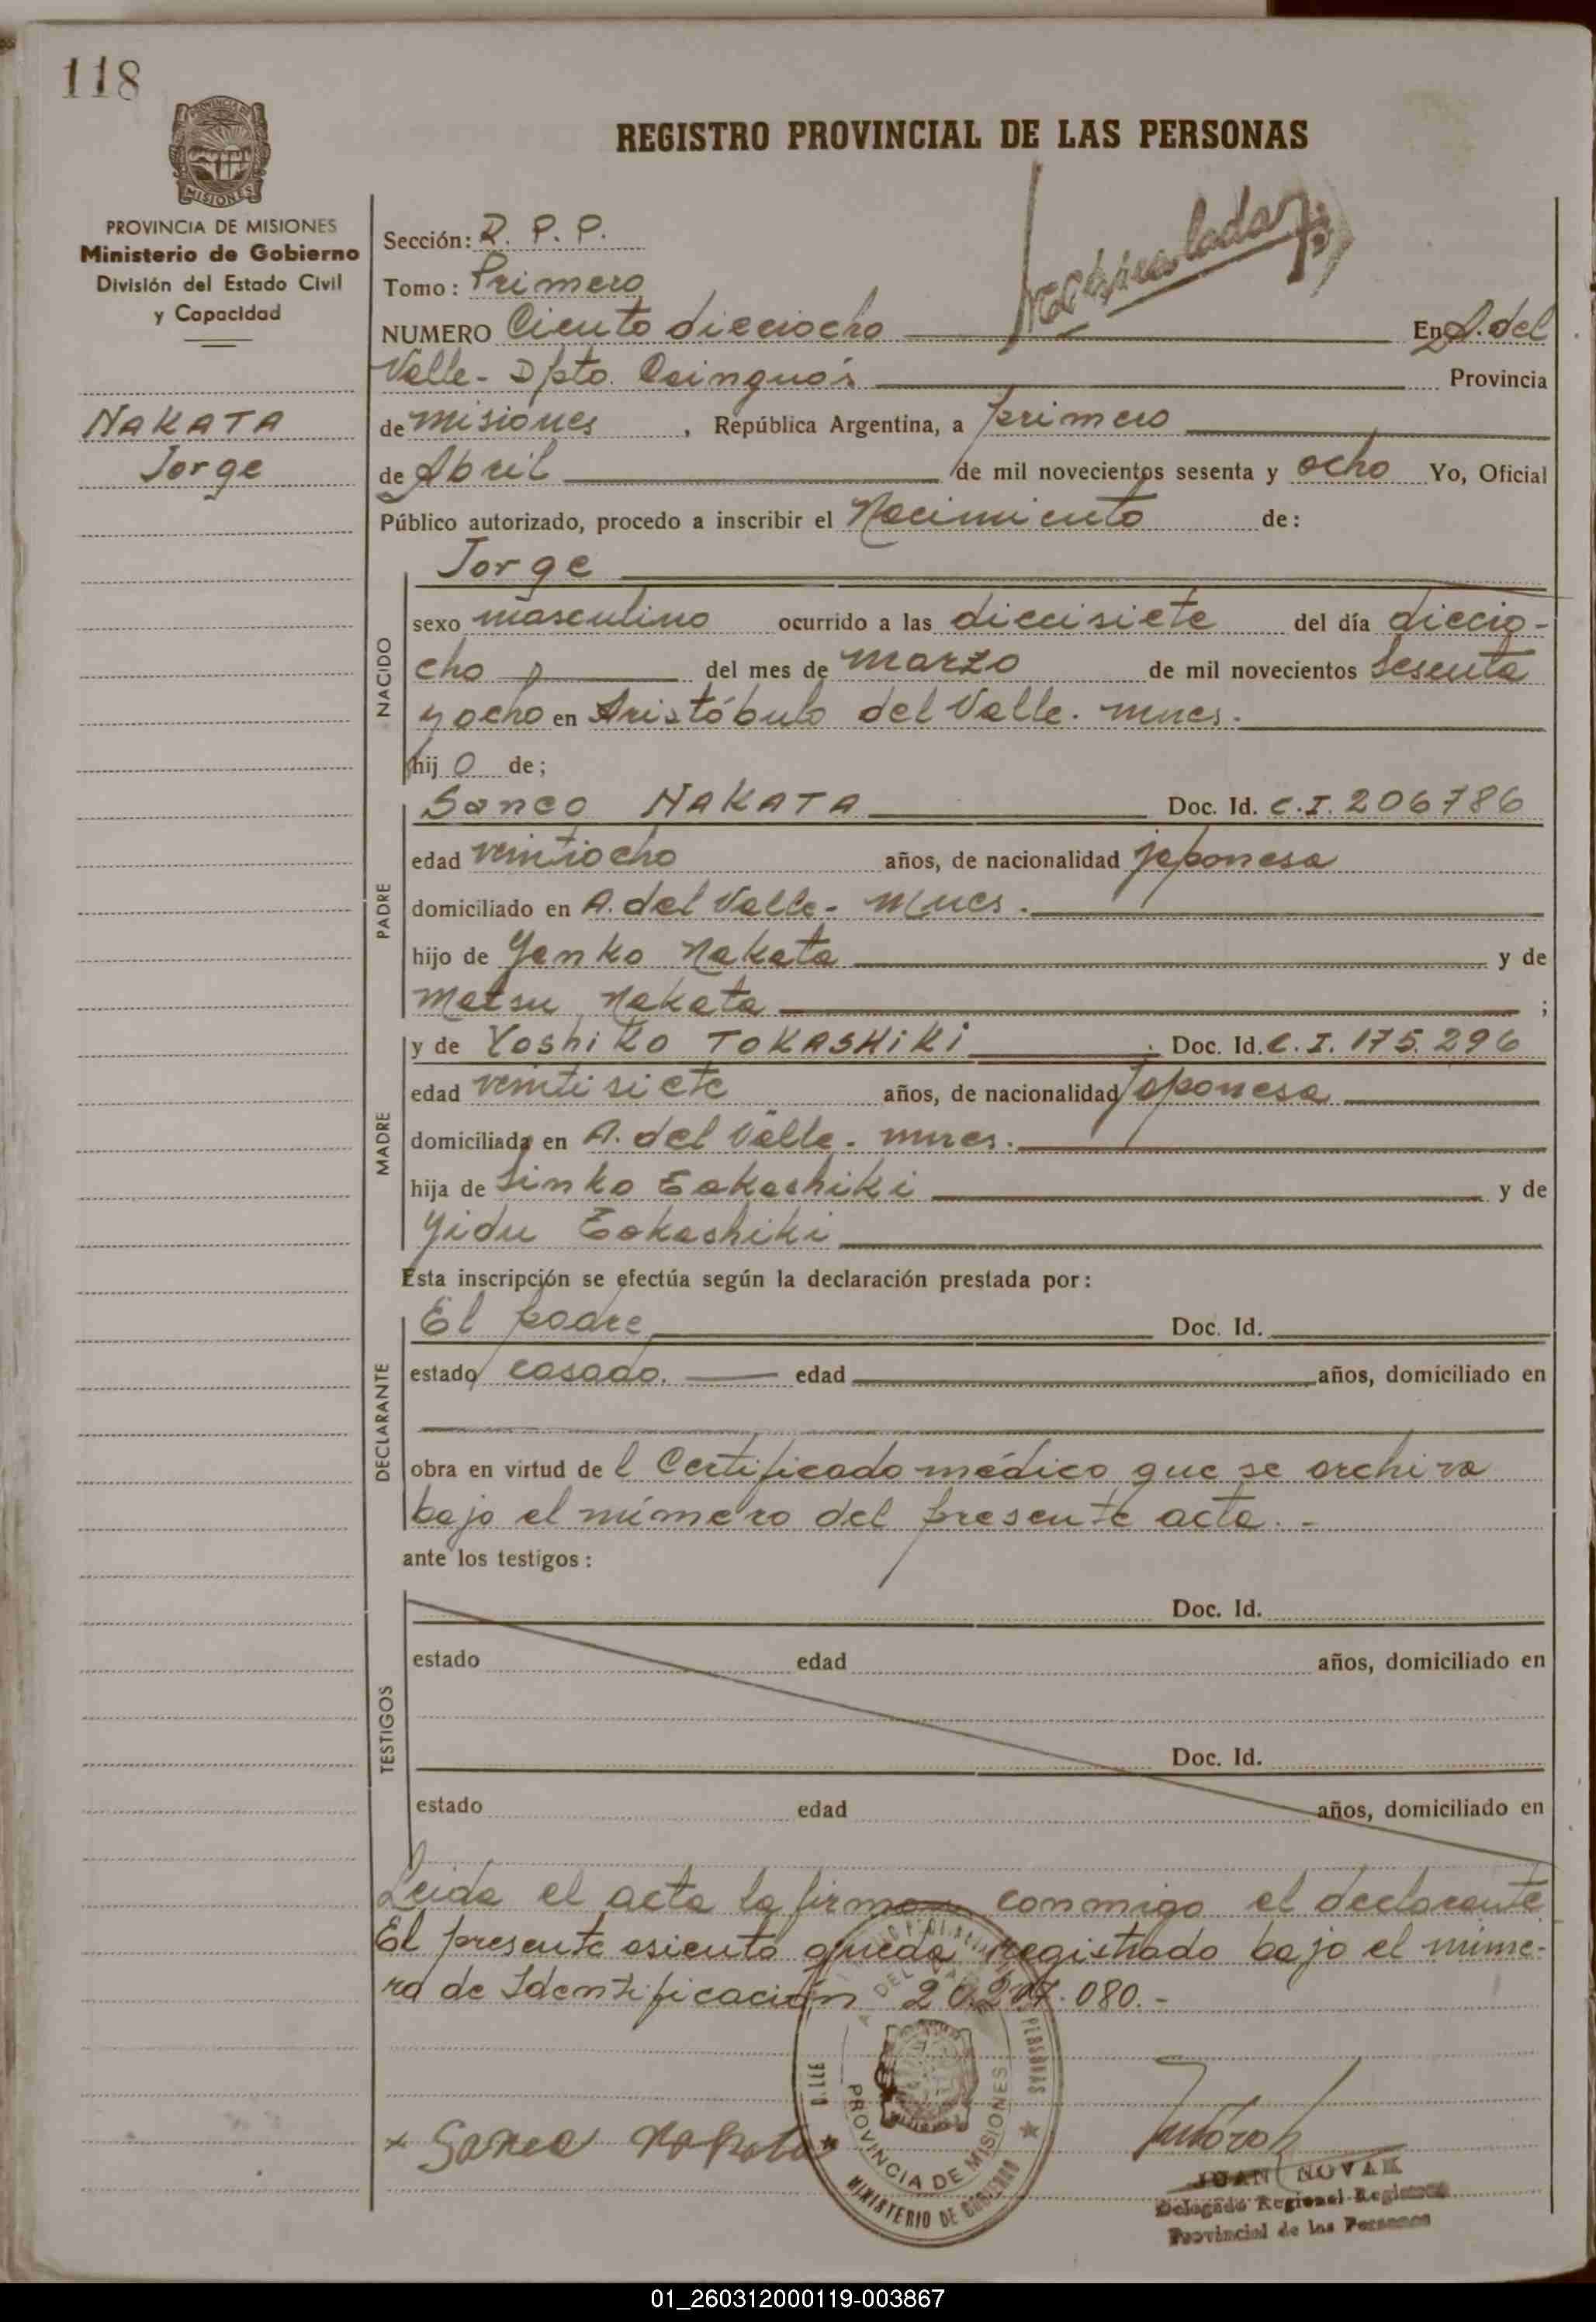 118
REGISTRO PROVINCIAL DE LAS PERSONAS
PROVINCIA DE
MISIONES
PROVINCIA DE MISIONES
Ministerio de Gobierno
División del Estado Civil
y Capacidad
NAKATA
Jorge
Sección: R. P. P.
Tomo: Primero
NUMERO Ciento dieciocho En A. del
Valle - Dpto. Cainguás Provincia
de Misiones, República Argentina, a primero
de Abril de mil novecientos sesenta y ocho Yo, Oficial
Público autorizado, procedo a inscribir el Nacimiento de:
NACIDO
Jorge
sexo masculino ocurrido a las diecisiete del día diecio-
cho del mes de Marzo de mil novecientos sesenta
y ocho en Aristóbulo del Valle. Mnes.
hij o de;
PADRE
Sanco NAKATA Doc. Id. C.I. 206786
edad veintiocho años, de nacionalidad japonesa
domiciliado en A. del Valle - Mnes.
hijo de Yenko Nakata y de
Matsu Nakata ;
MADRE
y de Yoshiko TOKASHIKI Doc. Id. C.I. 175.296
edad veintisiete años, de nacionalidad japonesa
domiciliada en A. del Valle - Mnes.
hija de Sinko Tokashiki y de
Yidu Tokashiki
Esta inscripción se efectúa según la declaración prestada por:
DECLARANTE
El padre Doc. Id.
estado casado. edad años, domiciliado en
obra en virtud de l Certificado médico que se archiva
bajo el número del presente acta. -
ante los testigos:
TESTIGOS
Doc. Id.
estado edad años, domiciliado en
Doc. Id.
estado edad años, domiciliado en
Leida el acta la firma conmigo el declarante
El presente asiento queda registrado bajo el núme-
ro de Identificación 080. -
PROVINCIA DE MISIONES
MINISTERIO DE GOBIERNO
x Sanco Nakata
JUAN NOVAK
Delegado Regional Registro
Provincial de las Personas
01_260312000119-003867